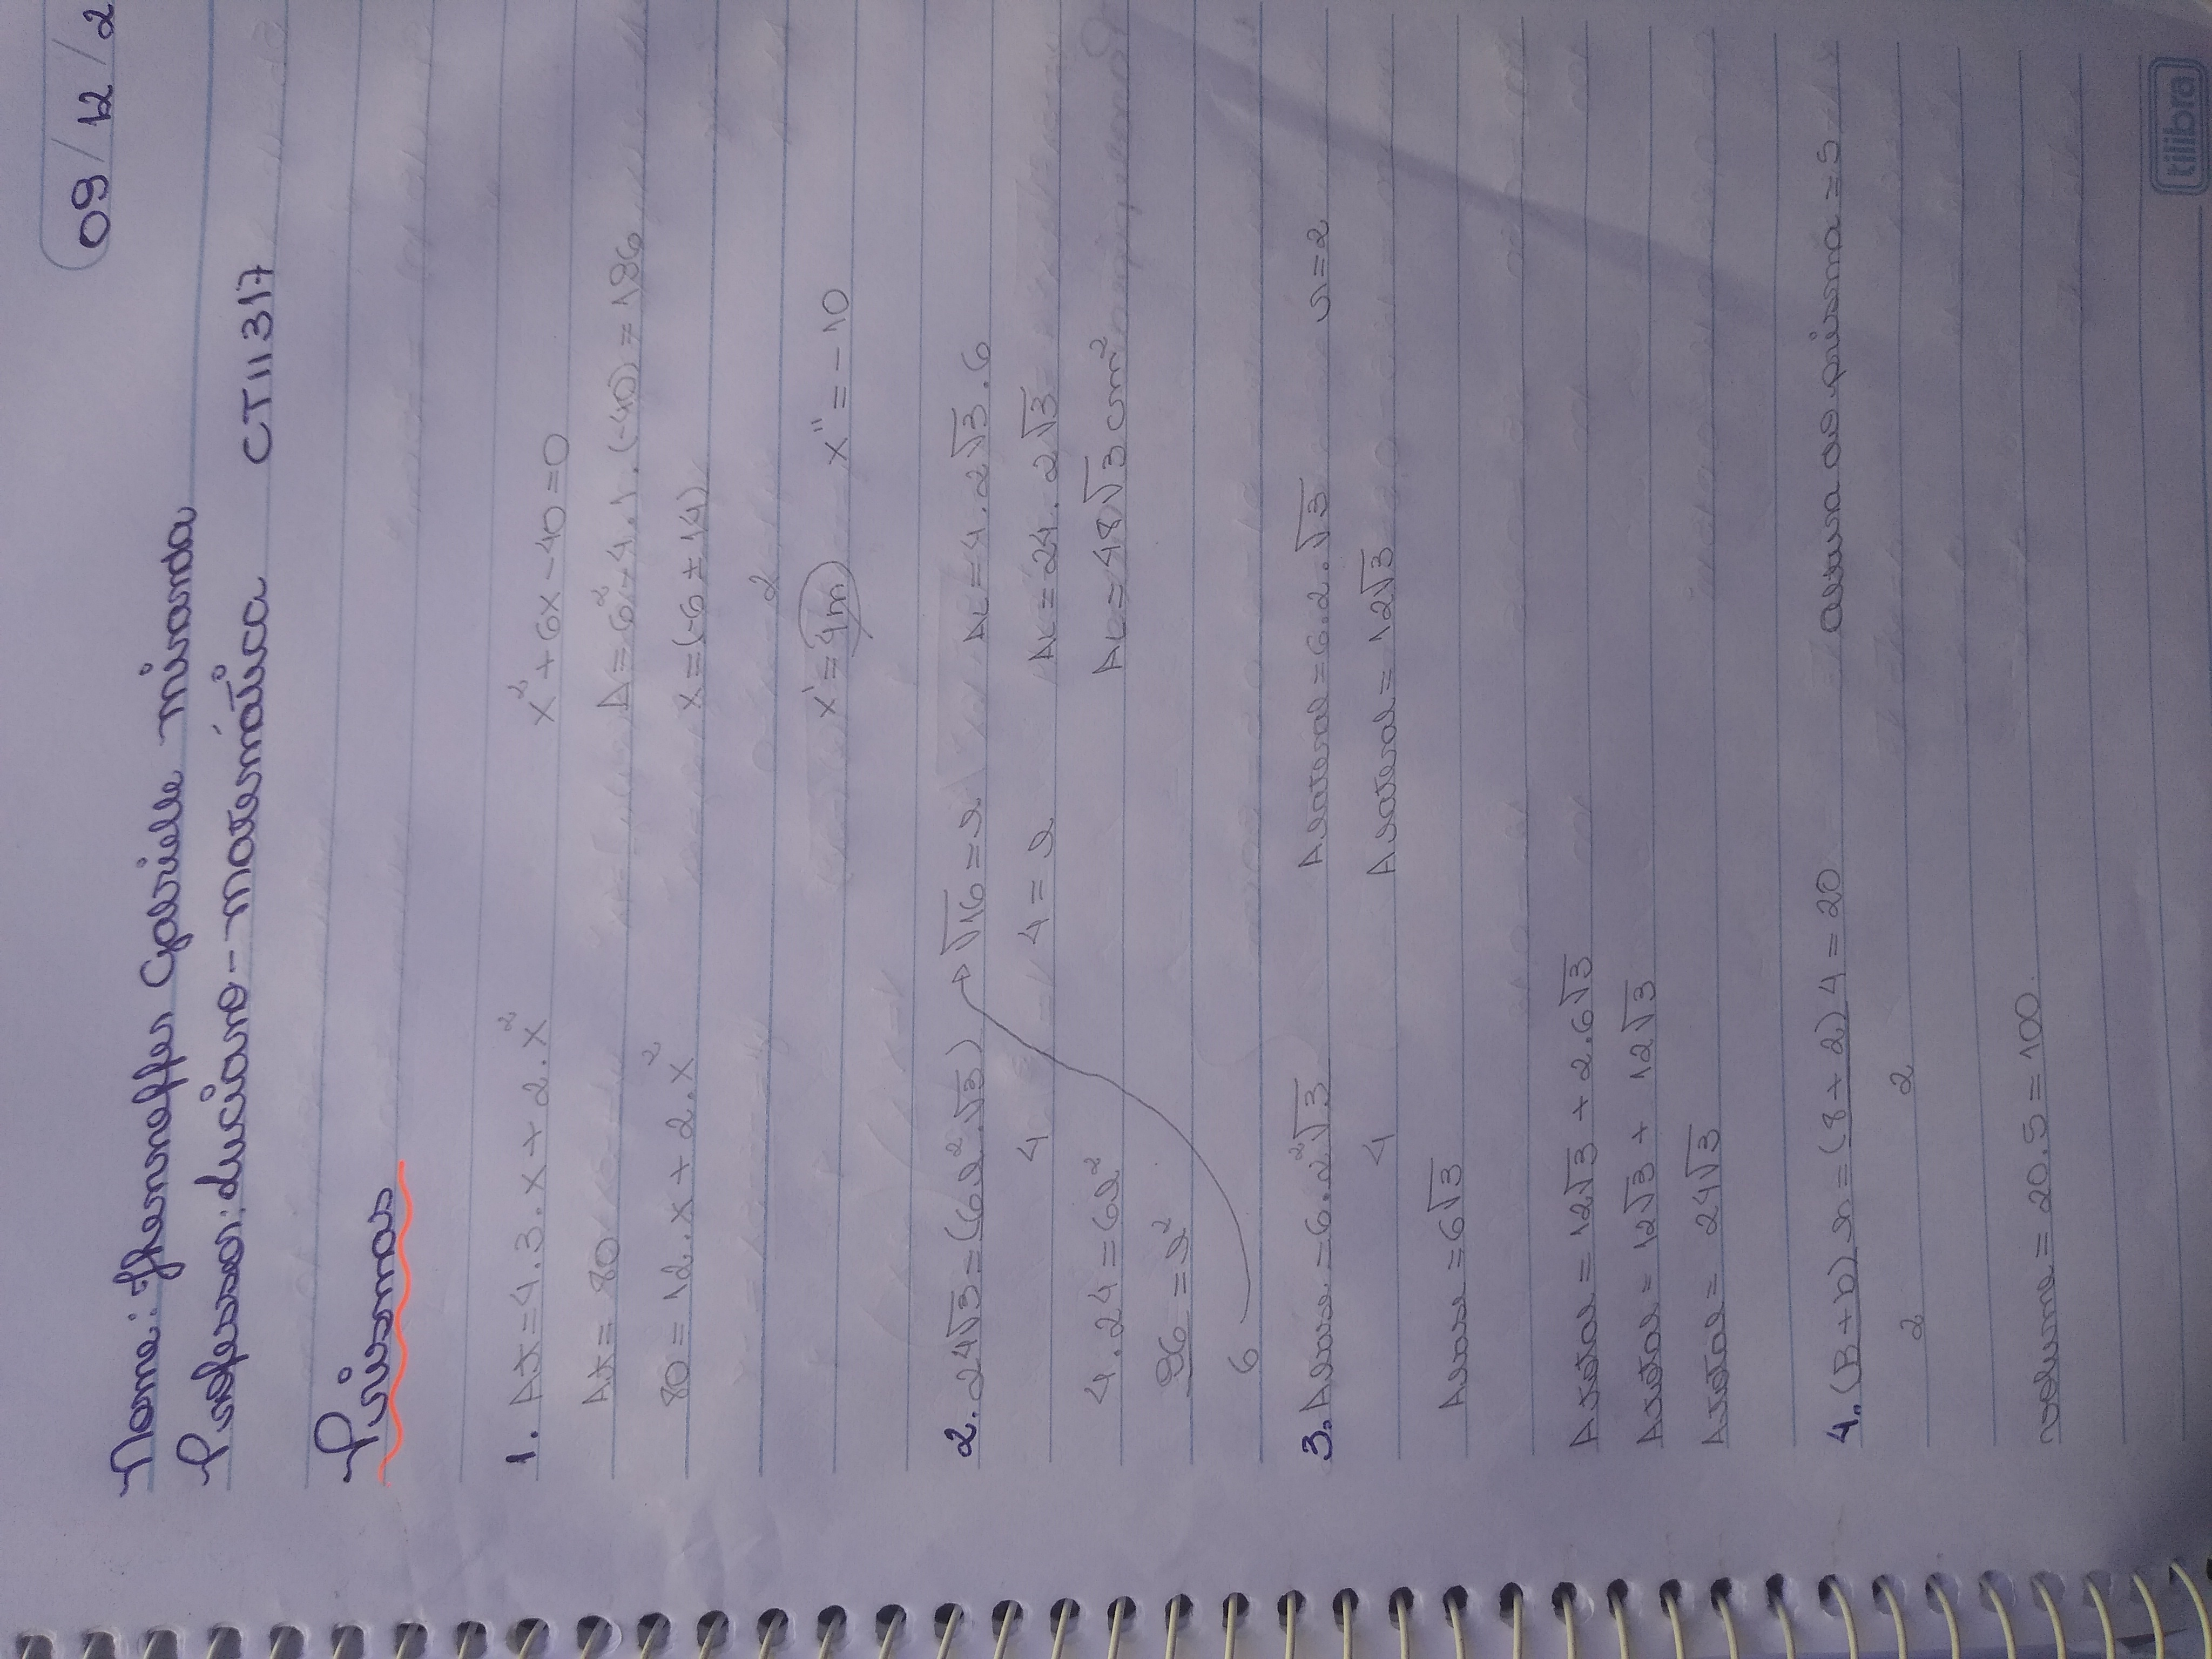 09/12/2
Nome: Jhenneffer Gabrielle Miranda
Professor: Luciano - Matemática CTII 317
Prismas
1. At = 4.3.x + 2.x²
At = 80
80 = 12.x + 2.x²
x² + 6x - 40 = 0
Δ = 6² - 4.1.(-40) = 196
x = (-6 ± 14)
2
x' = 4m x'' = -10
2. 24√3 = (6l².√3)
4
4.24 = 6l²
96 = l²
6
→ √16 = l
4 = l
AL = 4.2√3.6
AL = 24. 2√3
AL = 48√3 cm²
3. Abase = 6.2²√3
4
Abase = 6√3
Alateral = 6.2.√3
Alateral = 12√3
r = 2
Atotal = 12√3 + 2.6√3
Atotal = 12√3 + 12√3
Atotal = 24√3
4. (B+b) h = (8+2) 4 = 20
2 2
altura do prisma = 5
volume = 20.5 = 100.
tilibra